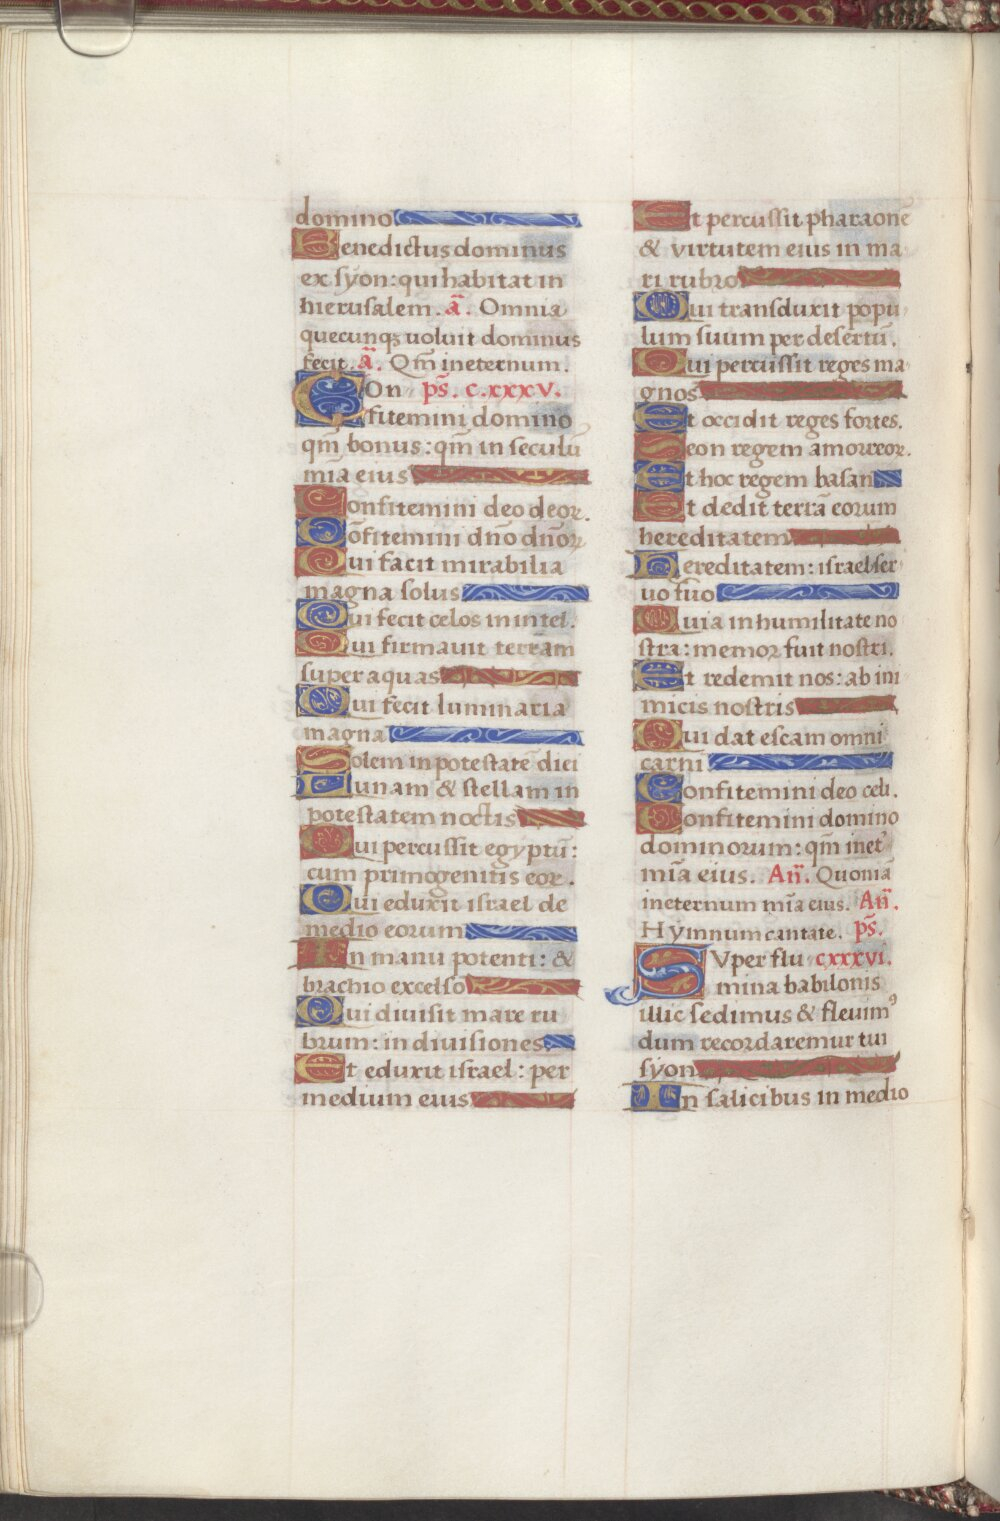 domino
Benedictus dominus
ex syon: qui habitat in
hierusalem. a͞. Omnia
quecunqꝫ uoluit dominus
fecit. a͞. Qm̄ ineternum.
COn ps̄. c.xxxv.
fitemini domino
qm̄ bonus: qm̄ in seculū
mīa eius
Confitemini deo deoꝝ.
Cōfitemini dn̄o dn̄oꝝ
Qui facit mirabilia
magna solus
Qui fecit celos in intel.
Qui firmauit terram
super aquas
Qui fecit luminaria
magna
Solem in potestatē diei
Lunam & stellam in
potestatem noctis
Qui percussit egyptū:
cum primogenitis eoꝝ.
Qui eduxit israel de
medio eorum
In manu potenti: &
brachio excelso
Qui diuisit mare ru
brum: in diuisiones
Et eduxit israel: per
medium eius
Et percussit pharaonē
& virtutem eius in ma
ri rubro.
Qui transduxit popu
lum suum per desertū.
Qui percussit reges ma
gnos
Et occidit reges fortes.
Seon regem amorreoꝝ.
Et hoc regem basan
Et dedit terrā eorum
hereditatem
Hereditatem: israel ser
uo suo
Quia in humilitate no
stra: memor fuit nostri.
Et redemit nos: ab ini
micis nostris
Qui dat escam omni
carni
Confitemini deo celi.
Confitemini domino
dominorum: qm̄ inet'
mīa eius. An̄. Quoniā
ineternum mīa eius. An̄.
Hymnum cantate. ps̄.
SVper flu cxxxvi.
mina babilonis
illic sedimus & fleuimꝰ
dum recordaremur tui
syon
In salicibus in medio